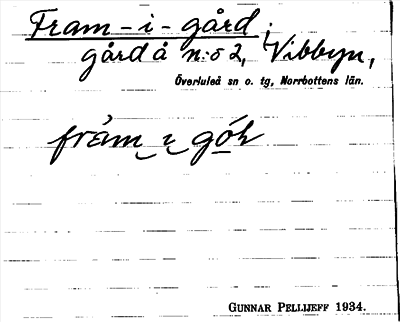 Fram-i-gård;
gård å n:o 2, Vibbyn,
Överluleå sn o. tg, Norrbottens län.
frám i gó̱h
GUNNAR PELLIJEFF 1934.